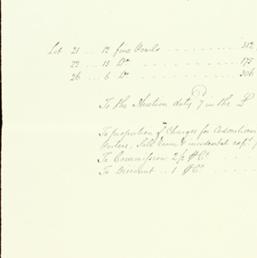 Lot 21 .. 12 fine Pearls ...... 312
22 .. 13 Do ...... 175
26 .. 6 Do ...... 206
To the Auction duty 7 in the £
To proportion of Charges for
& incidental
To Commission 2½ P Ct.
To Discount .. 1 P Ct.